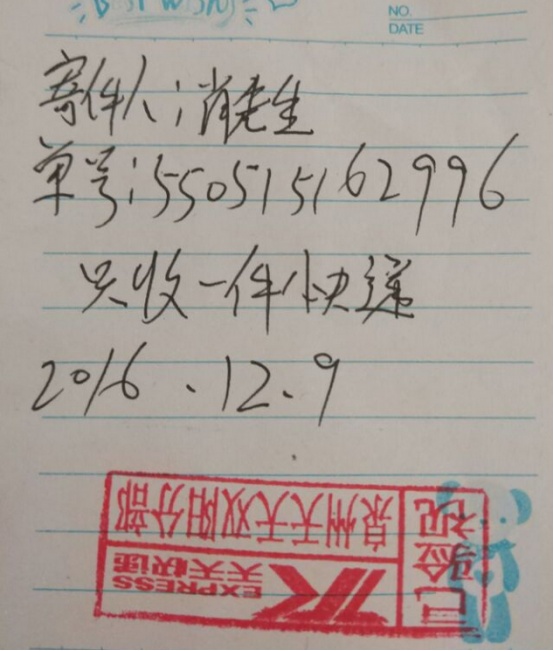 NO.
DATE
寄件人：肖先生
单号：550515162996
只收一件快递
2016.12.9
泉州天天双阳分部
天天快递
EXPRESS
已验视